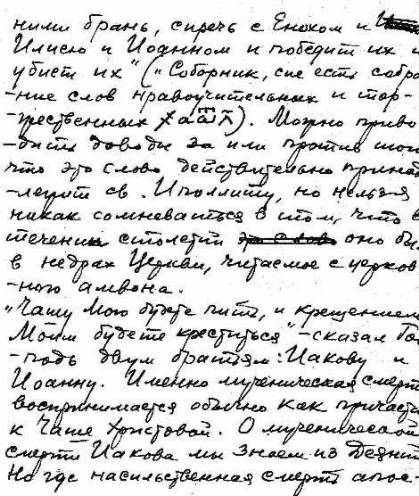 ними брань, сиречь с Енохом и
Илиею и Иоанном и победит их и
убиет их" ("Соборник, сие есть собра
-ние слов нравоучительных и тор-
-жественных). Можно приво
-дить доводы за или против того
что это слово действительно принад
-лежит св. Ипполиту, но нельзя
никак сомневаться в том, что в
течении столетий это слово оно бы
в недрах Церкви, читаемое с церков
-ного амвона.
"Чашу Мою будете пить, и крещением
Моим будете креститься" - сказал Гос
-подь двум братьям: Иакову и
Иоанну. Именно мученическая смерт
воспринимается обычно как причаст
к Чаше Христовой. О мученической
смерти Иакова мы знаем из Деяний
Но где насильственная смерть апос